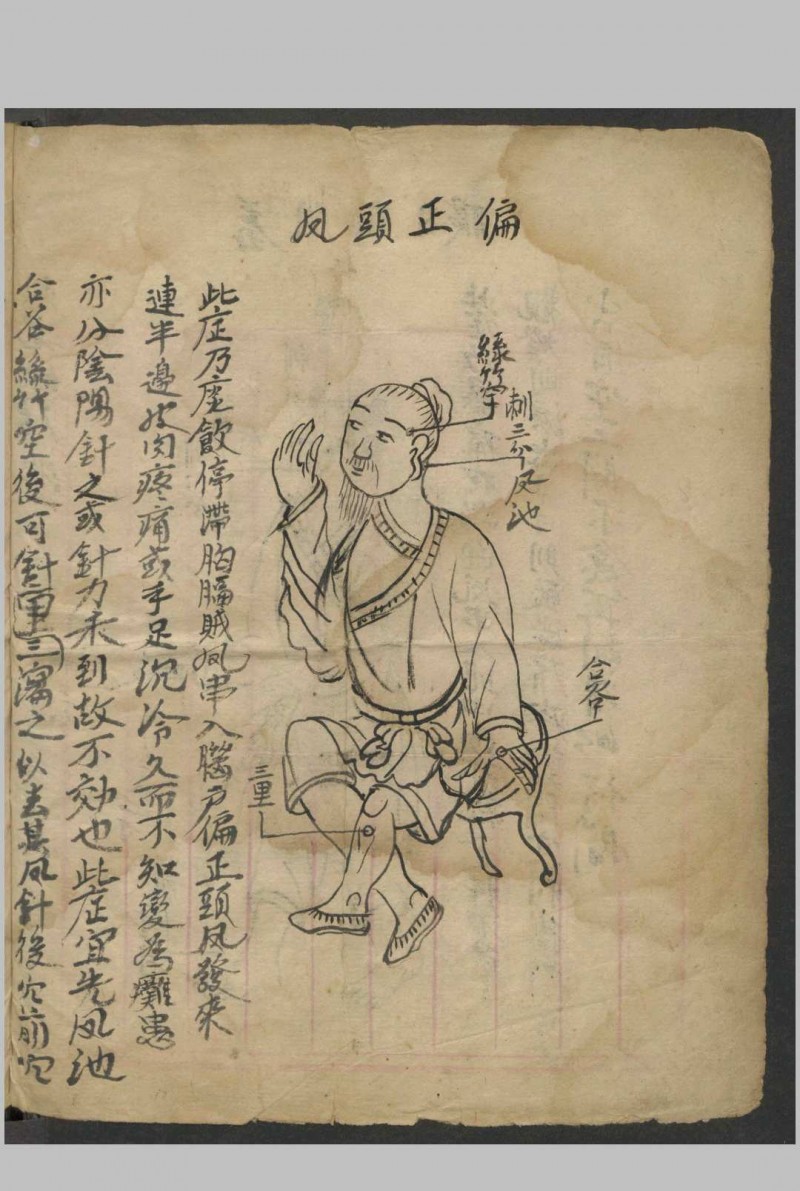 偏正頭风
絲竹空
刺三分 风池
合谷
三里
此症乃痰飲停滯胸膈賊风串入腦户偏正頭风發來
連半邊皮肉疼痛或手足沉冷久而不知變為癱患
亦分陰陽針之或針力未到故不効也此症宜先风池
合谷絲竹空後可針里三瀉之以去其风針後穴前穴